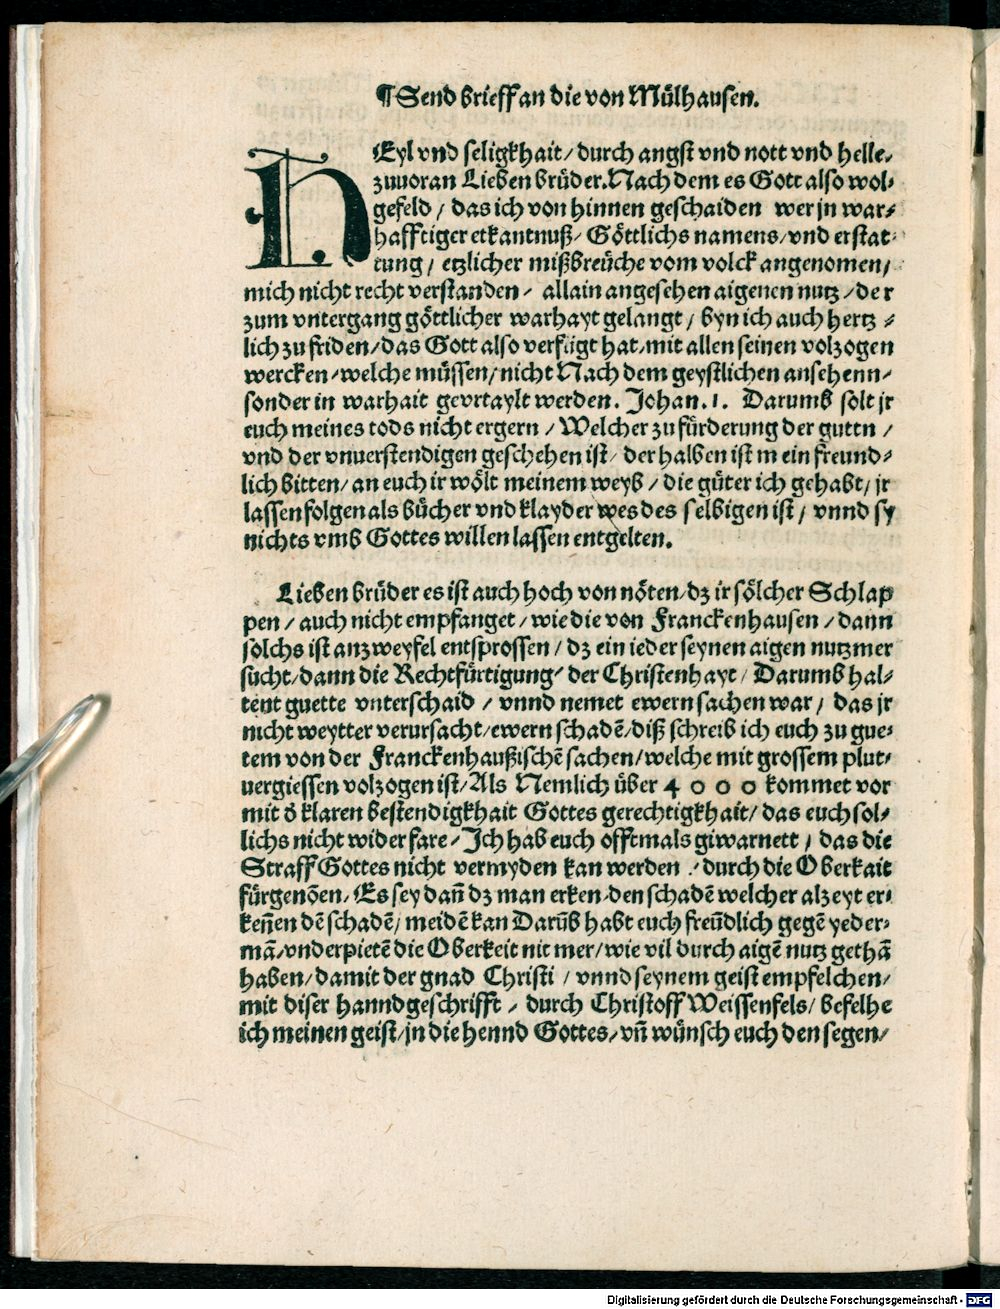 ¶Send brieff an die von Mülhausen.
HEyl vnd seligkhait/ durch angst vnd nott vnd helle-
zuuoran Lieben brüder. Nach dem es Gott also wol-
gefeld / das ich von hinnen geschaiden wer jn war-
hafftiger etkantnuß/ Göttlichs namens/ vnd erstat-
tung / etzlicher mißbreüche vom volck angenomen/
mich nicht recht verstanden / allain angesehen aigenen nutz / der
zum vntergang göttlicher warhayt gelangt / byn ich auch hertz -
lich zu friden/ das Gott also verfügt hat/ mit allen seinen volzogen
wercken/ welche müssen/ nicht Nach dem geystlichen ansehenn-
sonder in warhait georttaylt werden. Johan. 1. Darumb solt jr
euch meines tods nicht ergern / Welcher zu fürderung der guttn /
vnd der vnuerstendigen geschehen ist/ der halben ist m ein freund-
lich bitten/ an euch ir wölt meinem weyb / die güter ich gehabt/ jr
lassen folgen als bücher vnd klayder wes des selbigen ist / vnnd sy
nichts vmb Gottes willen lassen entgelten.
Lieben brüder es ist auch hoch von nöten/ dz ir sölcher Schlap
pen / auch nicht empfanget / wie die von Franckenhausen / dann
solchs ist anzweyfel entsprossen / dz ein ieder seynen aigen nutz mer
sucht/ dann die Rechtfürtigung/ der Christenhayt / Darumb hal-
tent guette vnterschaid / vnnd nemet ewern sachen war / das jr
nicht weytter verursacht/ ewern schadē/ diß schreib ich euch zu gue-
tem von der Franckenhaußischē sachen/ welche mit grossem plut-
uergiessen volzogen ist/ Als Nemlich über 4000 kommet vor
mit ď klaren bestendigkhait Gottes gerechtigkhait/ das euch sol-
lichs nicht wider fare/ Ich hab euch offtmals giwarnett / das die
Straff Gottes nicht vermyden kan werden / durch die Oberkait
fürgenōen/ Es sey dañ dz man erken/ den schadē welcher alzeyt er-
keñen dē schadē/ meidē kan Darūb habt euch freūdlich gegē yeder-
mā/ vnderpietē die Oberkeit nit mer/ wie vil durch aigē nutz gethā
haben/ damit der gnad Christi / vnnd seynem geist empfelchen/
mit diser hanndgeschrifft / durch Christoff Weissenfels/ befelhe
ich meinen geist/ jn die hennd Gottes/ vñ wünsch euch den segen/
Digitalisierung gefördert durch die Deutsche Forschungsgemeinschaft - DFG